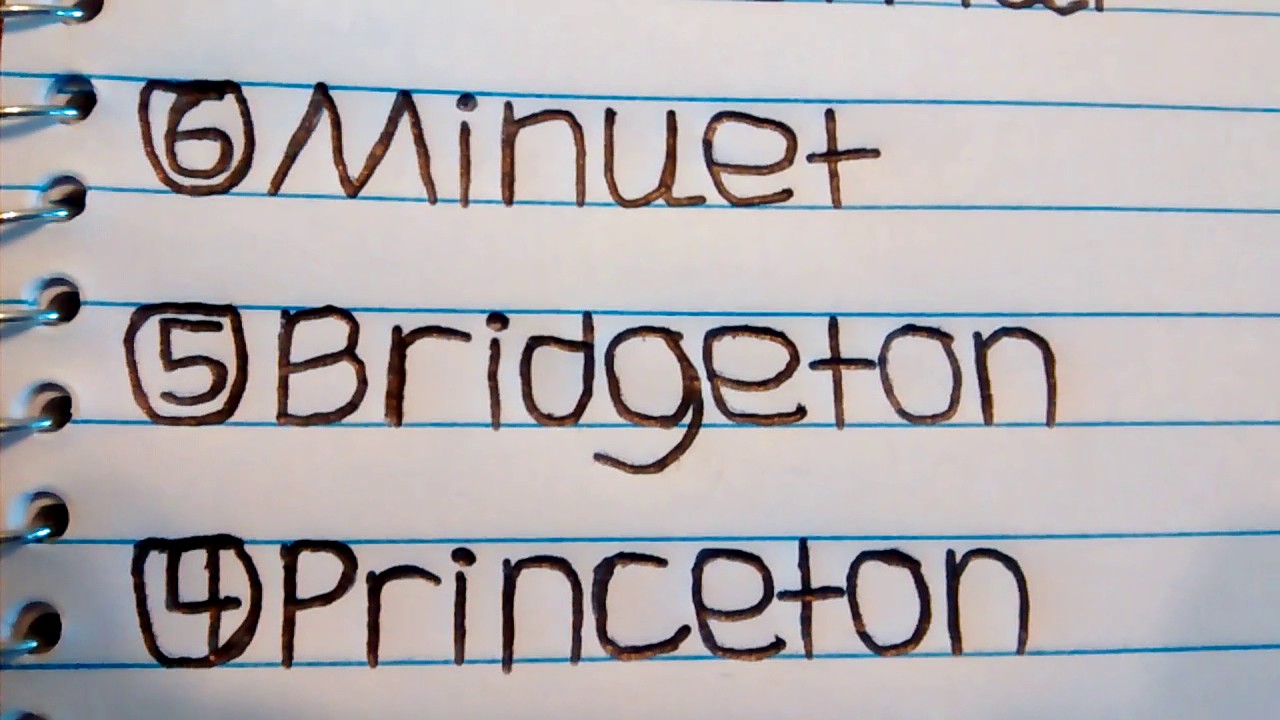 ⑥ Minuet
⑤ Bridgeton
④ Princeton